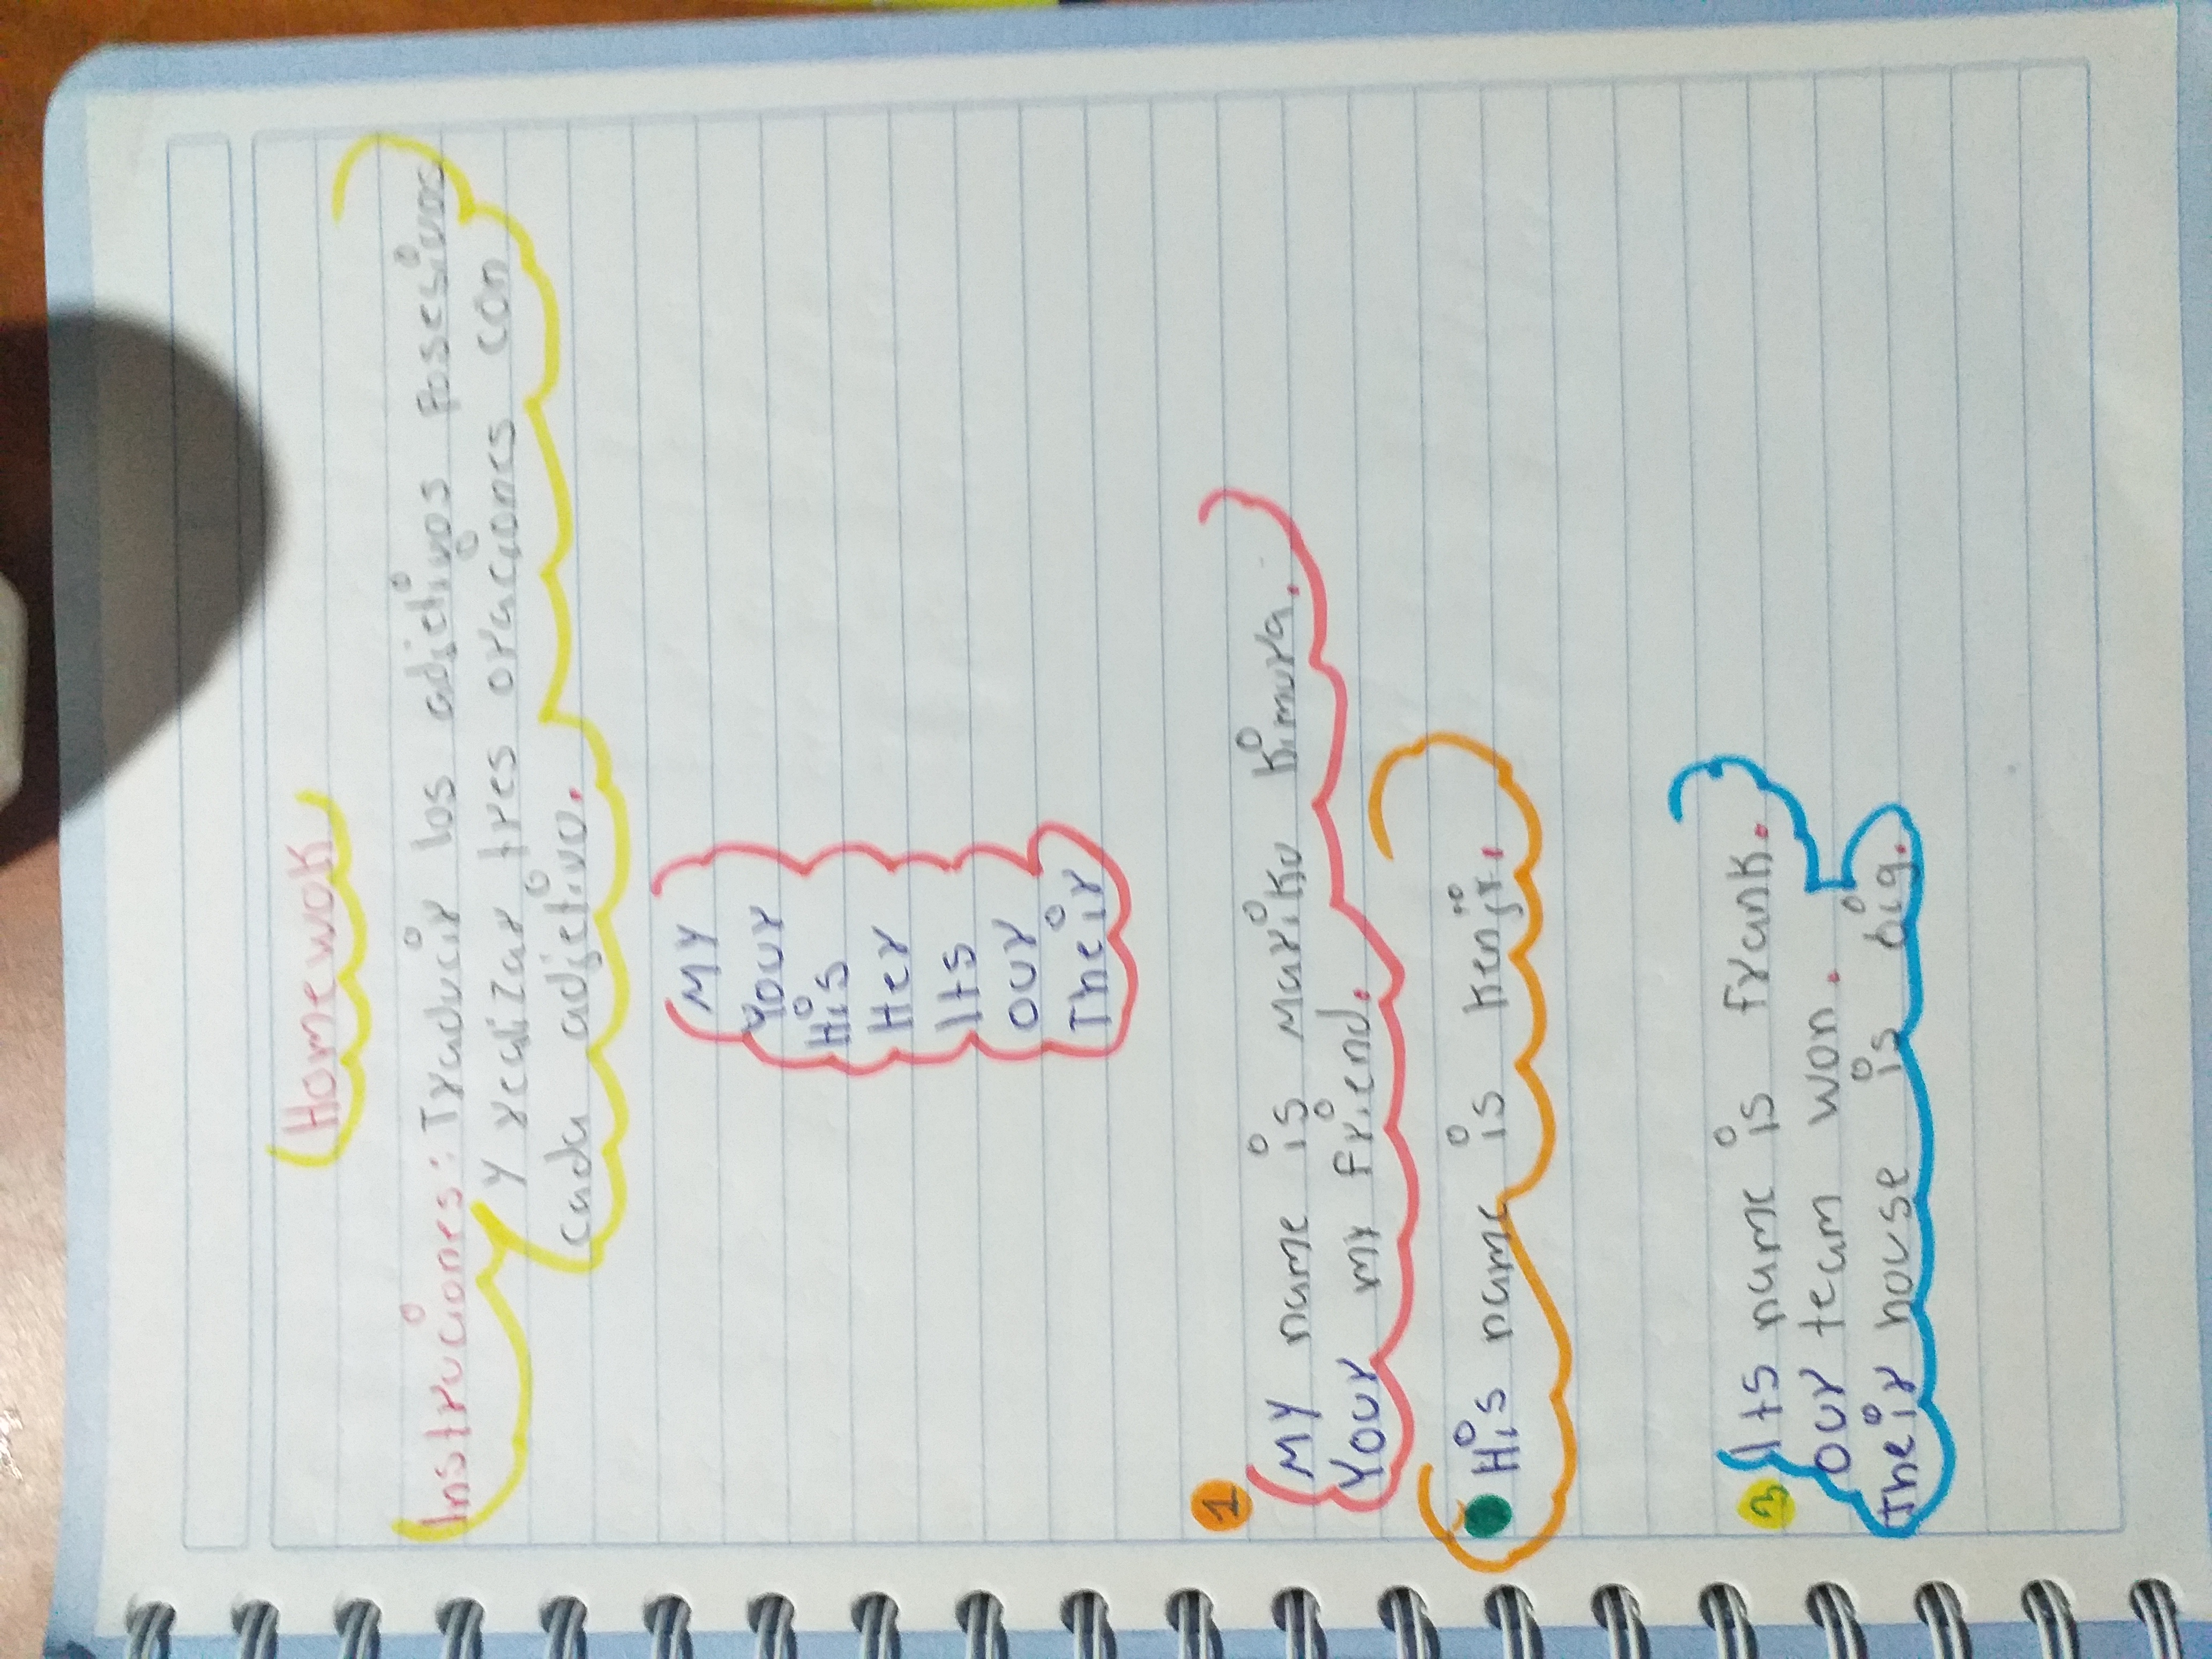 Homewok
Instruciones: Traducir los adjetivos Posesivos
y realizar tres oraciones con
cada adjetivo.
MY
Your
His
Her
Its
our
Their
1
MY name is Mariko kimura.
Your my friend.
His name is kenji.
3
Its name is frank.
our team won.
their house is big.